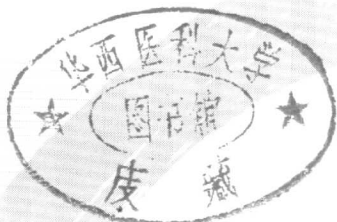 华西医科大学
图书馆
皮藏